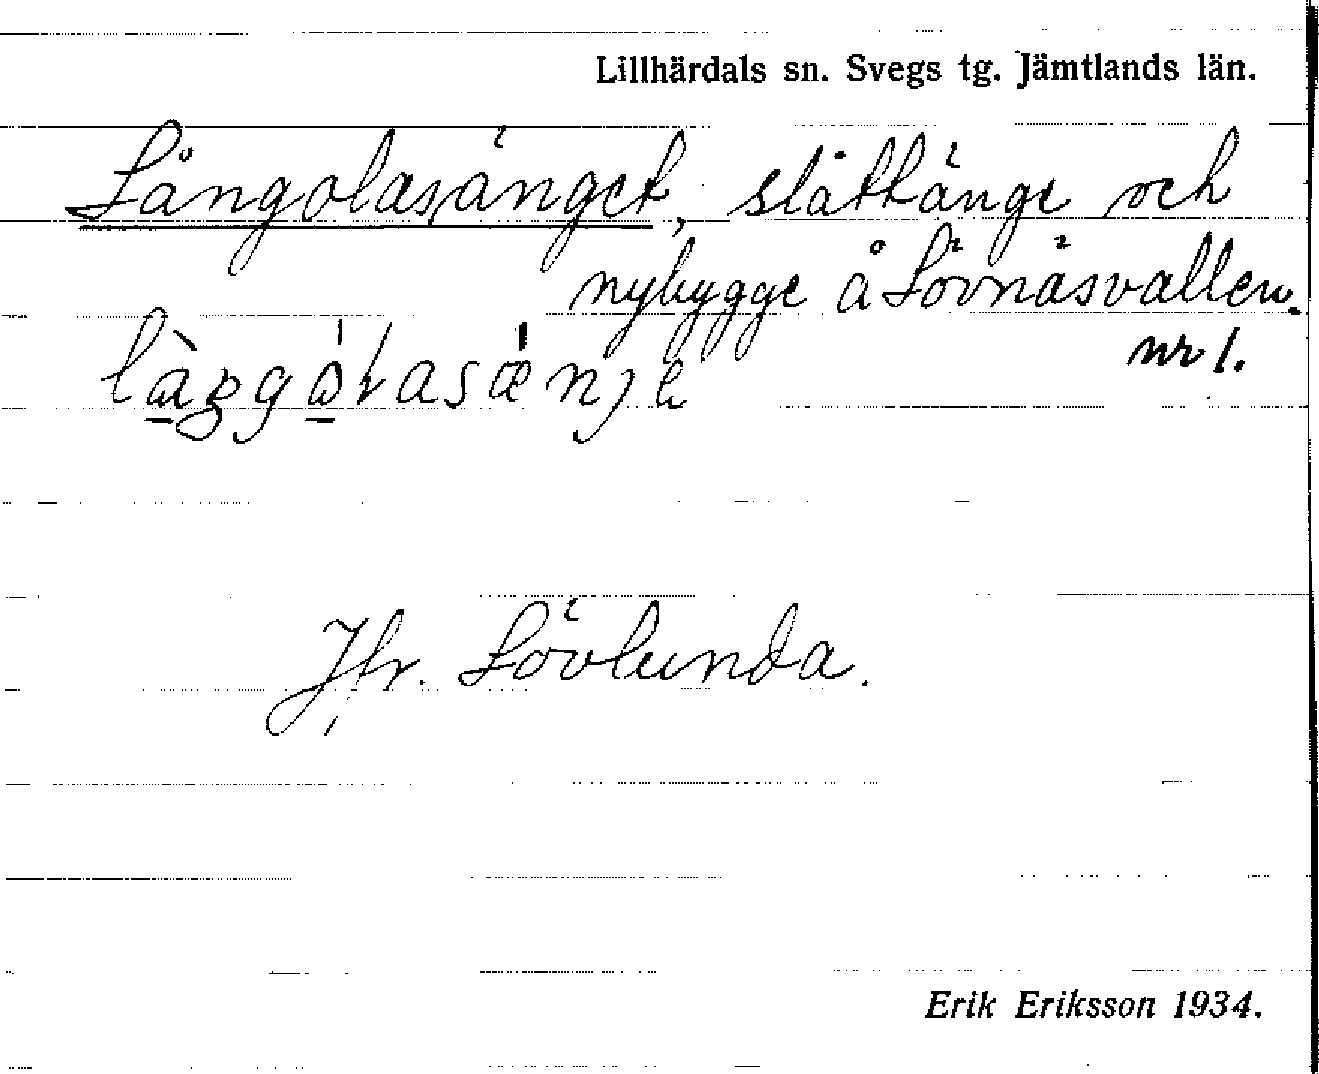 Lillhärdals sn. Svegs tg. Jämtlands län.
Långolasänget, slåttänge och
nybygge å Lövnäsvallen.
nr 1.
Jfr. Lövlunda.
Erik Eriksson 1934.